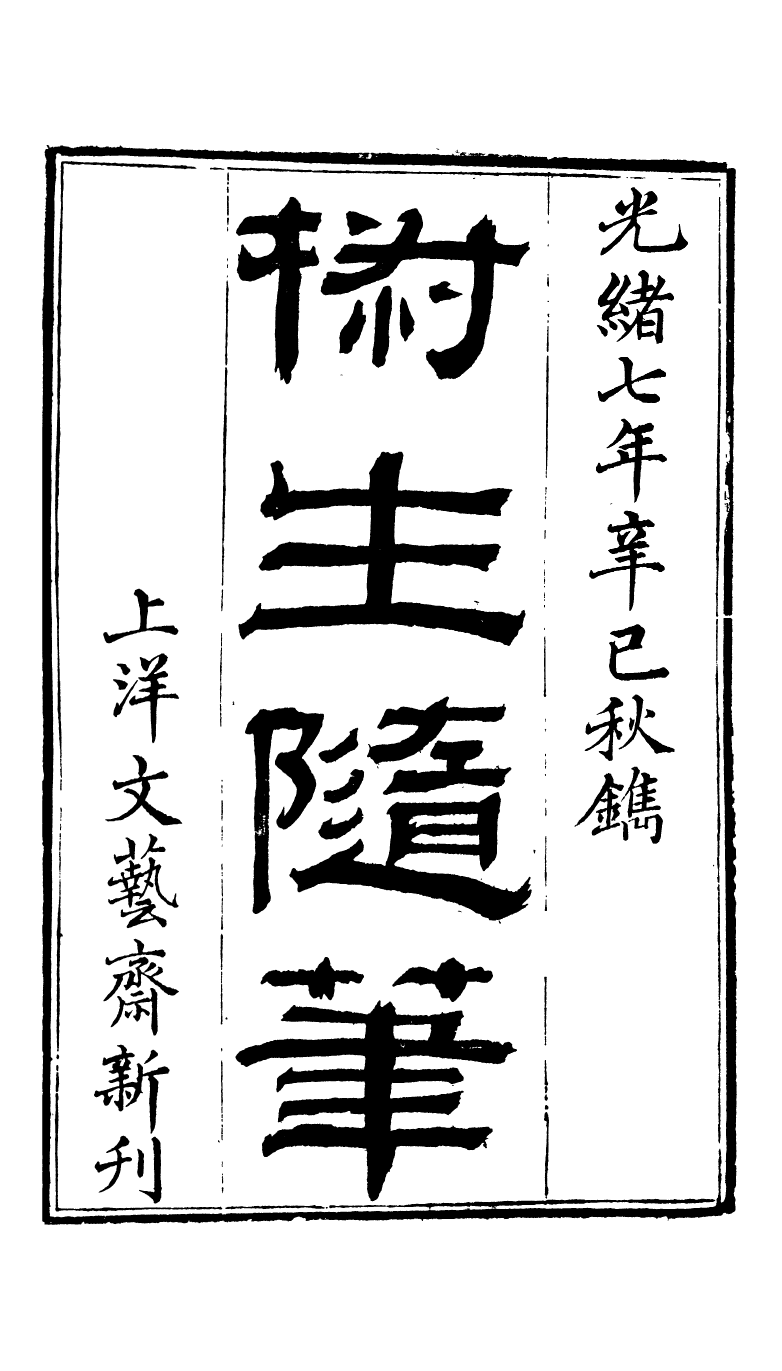 光緒七年辛巳秋鐫
椒生隨筆
上洋文藝齋新刊